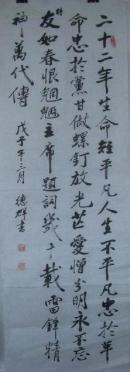 二十二年生命短平凡人生不平凡忠於革
命忠於黨甘做螺釘放光芒愛憎分明永不忘
友如春恨魍魎主席題詞幾十載雷鋒精
神萬代傳
戊子年三月 德群書